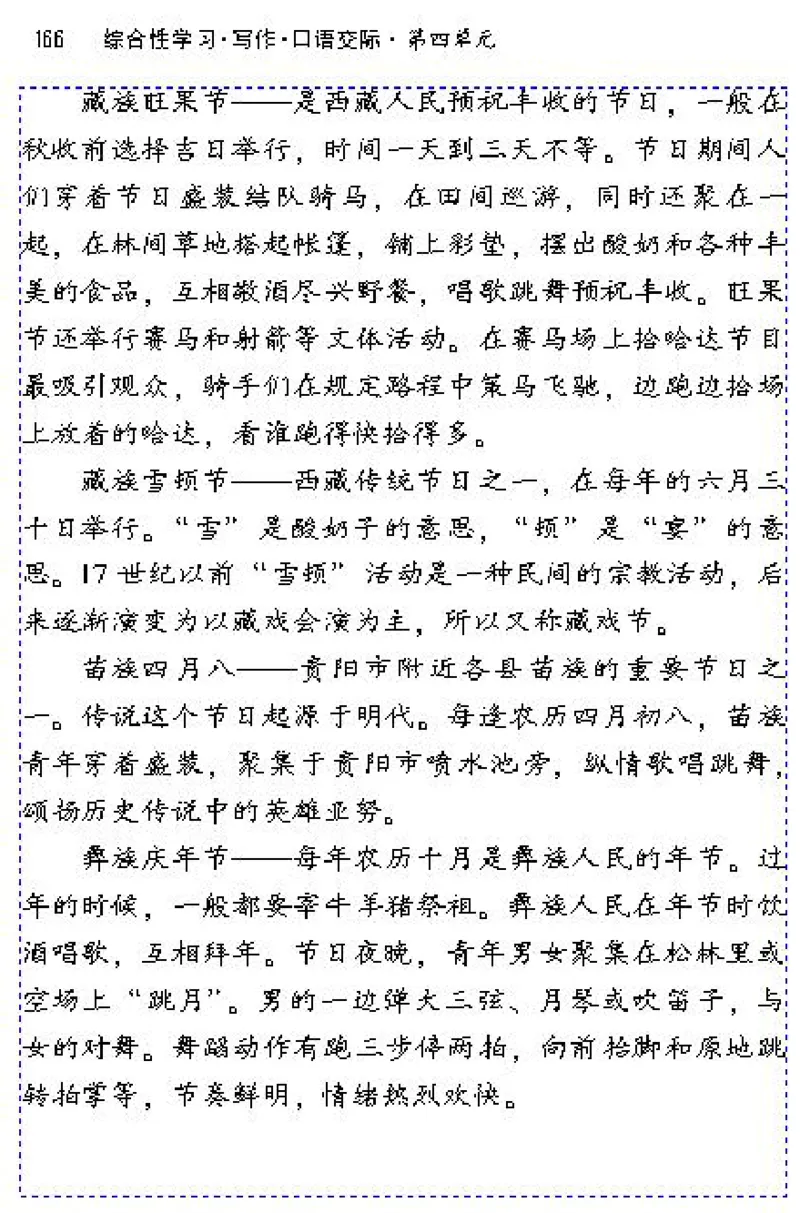 166 综合性学习·写作·口语交际·第四单元
藏族旺果节——是西藏人民预祝丰收的节日，一般在
秋收前选择吉日举行，时间一天到三天不等。节日期间人
们穿着节日盛装结队骑马，在田间巡游，同时还聚在一
起，在林间草地搭起帐篷，铺上彩垫，摆出酸奶和各种丰
美的食品，互相敬酒尽兴野餐，唱歌跳舞预祝丰收。旺果
节还举行赛马和射箭等文体活动。在赛马场上拾哈达节目
最吸引观众，骑手们在规定路程中策马飞驰，边跑边拾场
上放着的哈达，看谁跑得快拾得多。
藏族雪顿节——西藏传统节日之一，在每年的六月三
十日举行。“雪”是酸奶子的意思，“顿”是“宴”的意
思。17世纪以前“雪顿”活动是一种民间的宗教活动，后
来逐渐演变为以藏戏会演为主，所以又称藏戏节。
苗族四月八——贵阳市附近各县苗族的重要节日之
一。传说这个节日起源于明代。每逢农历四月初八，苗族
青年穿着盛装，聚集于贵阳市喷水池旁，纵情歌唱跳舞，
颂扬历史传说中的英雄亚努。
彝族庆年节——每年农历十月是彝族人民的年节。过
年的时候，一般都要宰牛羊猪祭祖。彝族人民在年节时饮
酒唱歌，互相拜年。节日夜晚，青年男女聚集在松林里或
空场上“跳月”。男的一边弹大三弦、月琴或吹笛子，与
女的对舞。舞蹈动作有跑三步停两拍，向前抬脚和原地跳
转拍掌等，节奏鲜明，情绪热烈欢快。